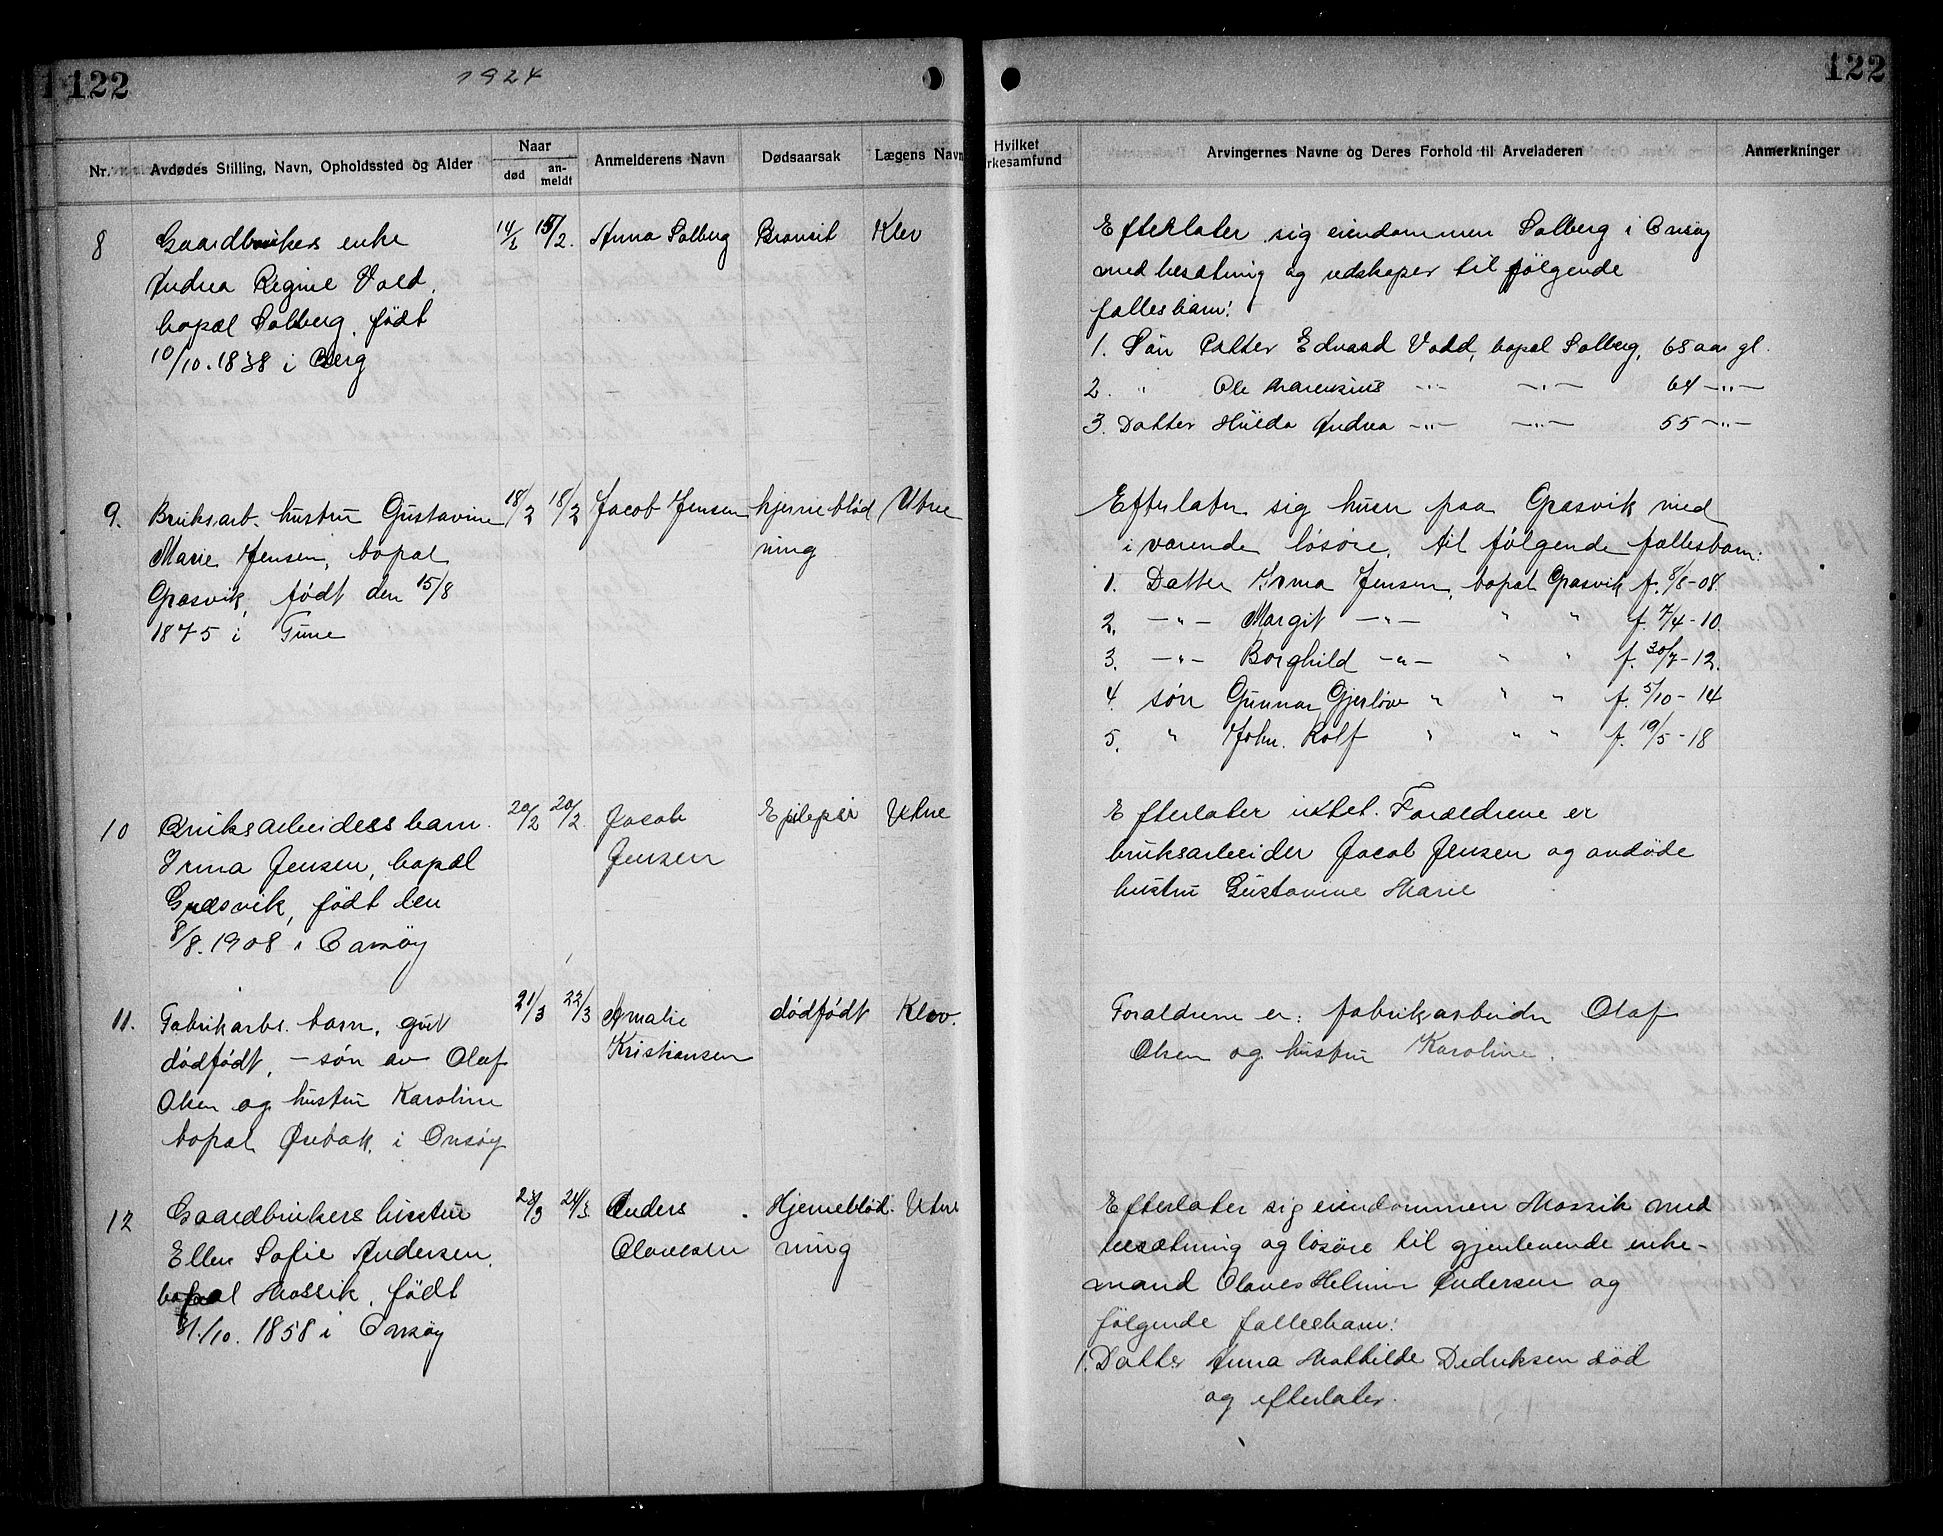 122
1924
122
Nr.
Avdødes Stilling, Navn, Opholdssted og Alder
Naar
død
an-
meldt
Anmelderens Navn
Dødsaarsak
Lægens Navn
Hvilket
rkesamfund
Arvingernes Navne og Deres Forhold til Arveladeren
Anmerkninger
8 Gaardbrukers enke 14/2 15/2. Anna Solberg Bronsit Klev
Andrea Regine Vold,
bopæl Solberg, født
10/10. 1838 i Berg
Efterlater sig eiendommen Solberg i Onsøy
med besætning og redskaper til følgende
fællesbarn:
1. Søn Petter Edvard Vold, bopæl Solberg, 68 aar gl.
2. " Ole Marensius -"- -"- 64 -"-
3. Datter Hulda Andrea -"- -"- 55 -"-
9. Bruksarb. hustru Gustavine 18/2 18/2 Jacob Jensen hjerneblød Utne
Marie Jensen, bopæl ning
Græsvik, født den 15/8
1875 i Tune
Efterlater sig huen paa Græsvik med
ivarende løsøre, til følgende fællesbarn:
1. Datter Irma Jensen, bopæl Græsvik f. 8/8-08.
2. -"- Margit -"- " " f. 7/4-10.
3. -"- Borghild -"- " " f. 30/7-12.
4. søn Gunnar Gjerløw " " " f. 5/10-14
5. " John. Rolf " " " f. 19/5-18
10 Bruksarbeiders barn 20/2 20/2. Jacob Epilepsi Utne
Irma Jensen, bopæl Jensen
Græsvik, født den
8/8. 1908 i Onsøy
Efterlater intet. Forældrene er
bruksarbeider Jacob Jensen og avdøde
hustru Gustavine Marie
11. Fabrikarbs. barn, gut 21/3 22/3 Amalie dødfødt Klev.
dødfødt, - søn av Olaf Kristiansen
Olsen og hustru Karoline
bopæl Ørebæk, i Onsøy
Forældrene er: fabrikarbeider Olaf
Olsen og hustru Karoline.
12 Gaardbrukers hustru 23/3 24/3 Anders Hjerneblød- Utne
Ellen Sofie Andersen, Olavesen ning
bopæl Mossik, født
31/10. 1858 i Onsøy
Efterlater sig eiendommen Mossik med
besætning og løsøre til gjenlevende enke-
mand Olaves Helmer Andersen og
følgende fællesbarn:
1. Datter Anna Mathilde Dedriksen død
og efterlater.